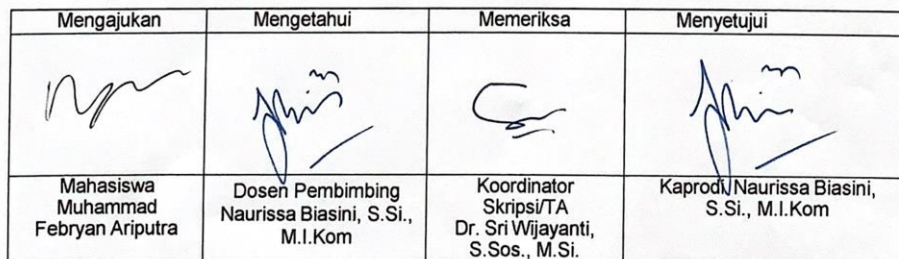 Mengajukan Mengetahui Memeriksa Menyetujui
Mahasiswa
Muhammad
Febryan Ariputra
Dosen Pembimbing
Naurissa Biasini, S.Si.,
M.I.Kom
Koordinator
Skripsi/TA
Dr. Sri Wijayanti,
S.Sos., M.Si.
Kaprodi, Naurissa Biasini,
S.Si., M.I.Kom